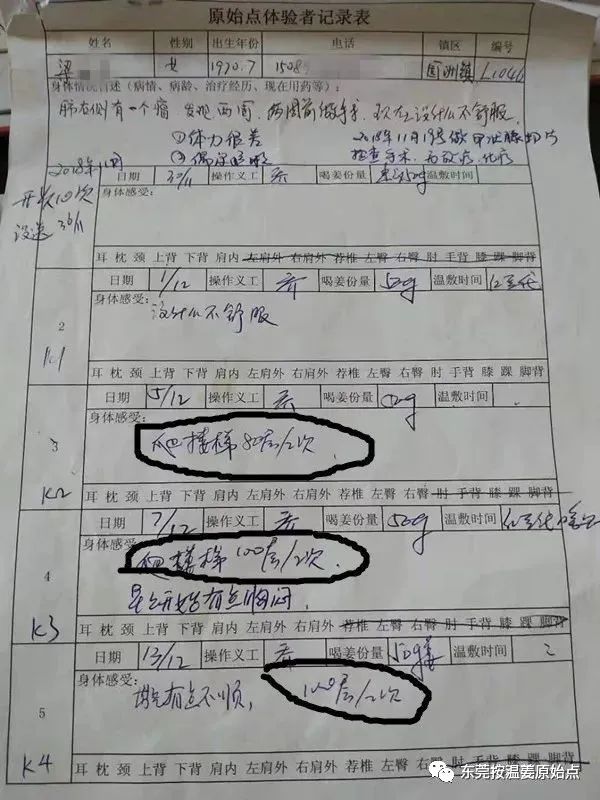 原始点体验者记录表
姓名 性别 出生年份 电话 镇区 编号
梁 女 1970.7 1508 L1046
身体情况自述（病情、病龄、治疗经历、现在用药等）：
肺右侧有一个瘤，发现两周，两周前做手术，现在没什么不舒服
①体力很差
2018年11月19号做
检查手术，
2018年11月
日期 30/11 操作义工 喝姜份量 50g 温敷时间
身体感受：
耳 枕 颈 上背 下背 肩内 左肩外 右肩外 荐椎 左臀 右臀 肘 手背 膝 踝 脚背
2
日期 1/12 操作义工 喝姜份量 50g 温敷时间
身体感受：
没什么不舒服
K1
耳 枕 颈 上背 下背 肩内 左肩外 右肩外 荐椎 左臀 右臀 肘 手背 膝 踝 脚背
3
日期 5/12 操作义工 喝姜份量 50g 温敷时间
身体感受：
爬楼梯80层/2次
K2
耳 枕 颈 上背 下背 肩内 左肩外 右肩外 荐椎 左臀 右臀 肘 手背 膝 踝 脚背
4
日期 7/12 操作义工 喝姜份量 50g 温敷时间
身体感受：
爬楼梯100层/2次
早上开始有点胸闷
K3
耳 枕 颈 上背 下背 肩内 左肩外 右肩外 荐椎 左臀 右臀 肘 手背 膝 踝 脚背
5
日期 13/12 操作义工 喝姜份量 50g 温敷时间
身体感受：
有点不顺，100层/2次
K4
耳 枕 颈 上背 下背 肩内 左肩外 右肩外 荐椎 左臀 右臀 肘 手背 膝 踝 脚背
东莞按温姜原始点